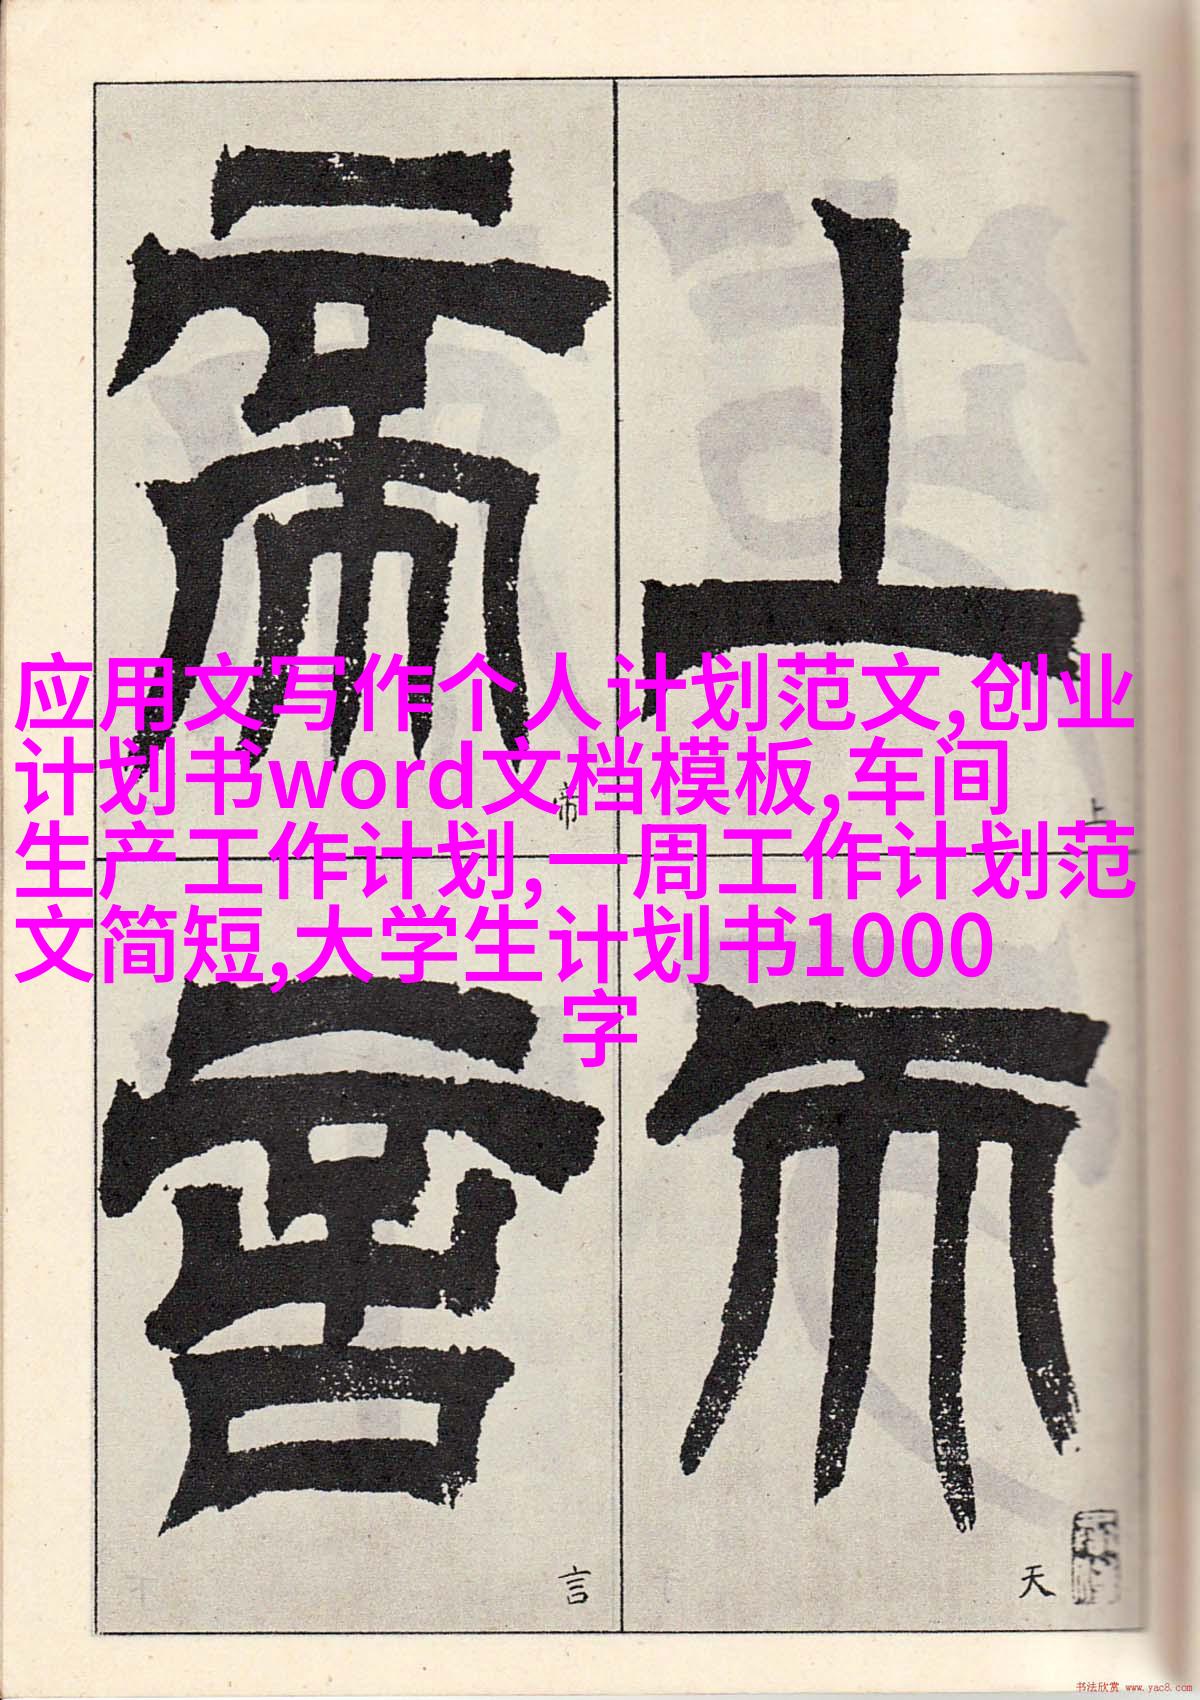 上
天
帝
言
应用文写作个人计划范文,创业
计划书word文档模板,车间
生产工作计划,一周工作计划范
文简短,大学生计划书1000
字
上
天
帝
言
书法欣赏 www.yac8.com